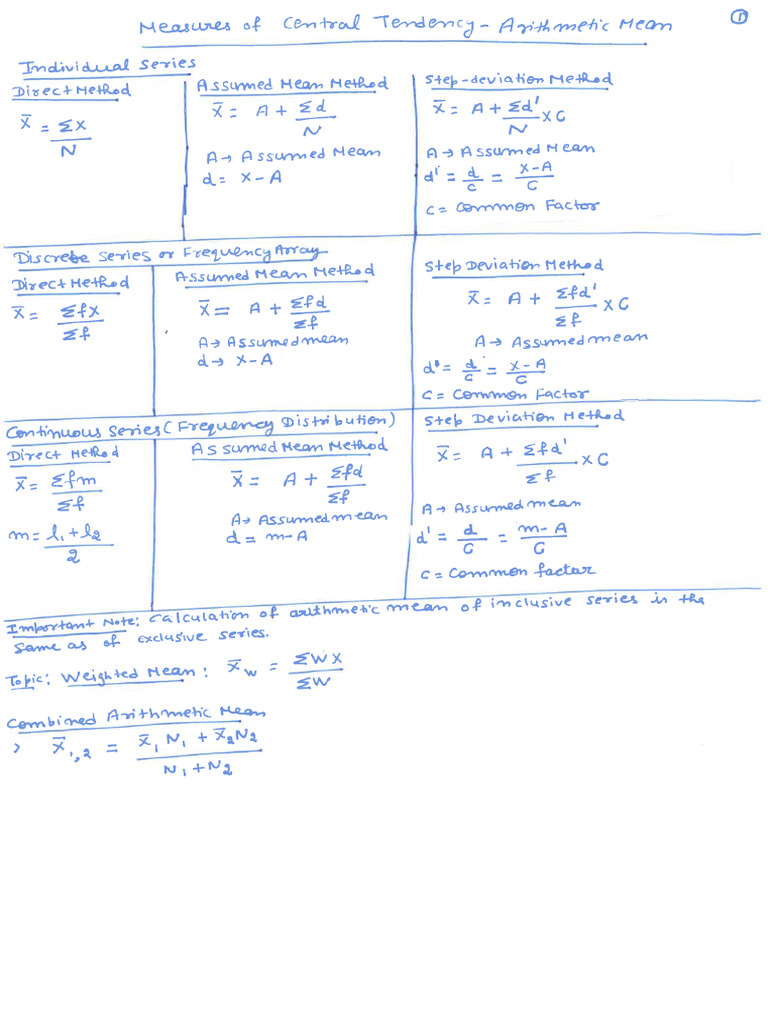 Measures of Central Tendency - Arithmetic Mean
①
Individual Series
Direct Method
X̄ = ΣX / N
Assumed Mean Method
X̄ = A + Σd / N
A → Assumed Mean
d = X - A
Step-deviation Method
X̄ = A + Σd' / N × C
A → Assumed Mean
d' = d / C = X - A / C
C = Common Factor
Discrete Series or Frequency Array
Direct Method
X̄ = ΣfX / Σf
Assumed Mean Method
X̄ = A + Σfd / Σf
A → Assumed mean
d → X - A
Step Deviation Method
X̄ = A + Σfd' / Σf × C
A → Assumed mean
d' = d / C = X - A / C
C = Common Factor
Continuous Series (Frequency Distribution)
Direct Method
X̄ = Σfm / Σf
m = l₁ + l₂ / 2
Assumed Mean Method
X̄ = A + Σfd / Σf
A → Assumed mean
d = m - A
Step Deviation Method
X̄ = A + Σfd' / Σf × C
A → Assumed mean
d' = d / C = m - A / C
C = Common factor
Important Note: Calculation of arithmetic mean of inclusive series is the
same as of exclusive series.
Topic: Weighted Mean: X̄w = ΣWX / ΣW
Combined Arithmetic Mean
> X̄₁,₂ = X̄₁N₁ + X̄₂N₂ / N₁ + N₂